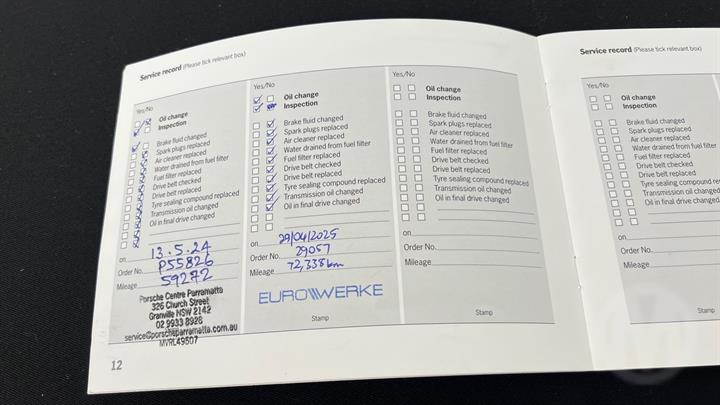 Service record (Please tick relevant box)
Yes/No
Oil change
Inspection
Brake fluid changed
Spark plugs replaced
Air cleaner replaced
Water drained from fuel filter
Fuel filter replaced
Drive belt checked
Drive belt replaced
Tyre sealing compound replaced
Transmission oil changed
Oil in final drive changed
on 13.5.24
Order No. P55826
Mileage 59272
Porsche Centre Parramatta
326 Church Street
Granville NSW 2142
02 9933 8928
service@porscheparramatta.com.au
MVRL49507
12
Yes/No
Oil change
Inspection
Brake fluid changed
Spark plugs replaced
Air cleaner replaced
Water drained from fuel filter
Fuel filter replaced
Drive belt checked
Drive belt replaced
Tyre sealing compound replaced
Transmission oil changed
Oil in final drive changed
on 29/04/2025
Order No. 29057
Mileage 72,338km
EUROWERKE
Stamp
Yes/No
Oil change
Inspection
Brake fluid changed
Spark plugs replaced
Air cleaner replaced
Water drained from fuel filter
Fuel filter replaced
Drive belt checked
Drive belt replaced
Tyre sealing compound replaced
Transmission oil changed
Oil in final drive changed
on
Order No.
Mileage
Stamp
Service record (Please tick relevant box)
Yes/No
Oil change
Inspection
Brake fluid changed
Spark plugs replaced
Air cleaner replaced
Water drained from fuel filter
Fuel filter replaced
Drive belt checked
Drive belt replaced
Tyre sealing compound re
Transmission oil changed
Oil in final drive changed
on
Order No.
Mileage
Stamp